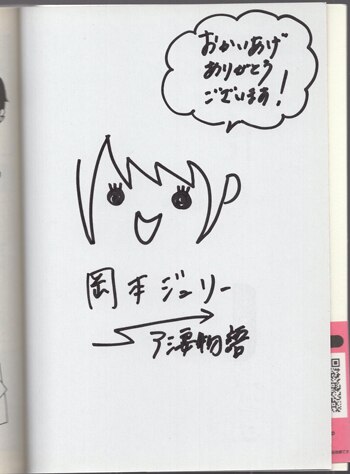 おかいあげ
ありがとう
ございます!
岡本ジュリー